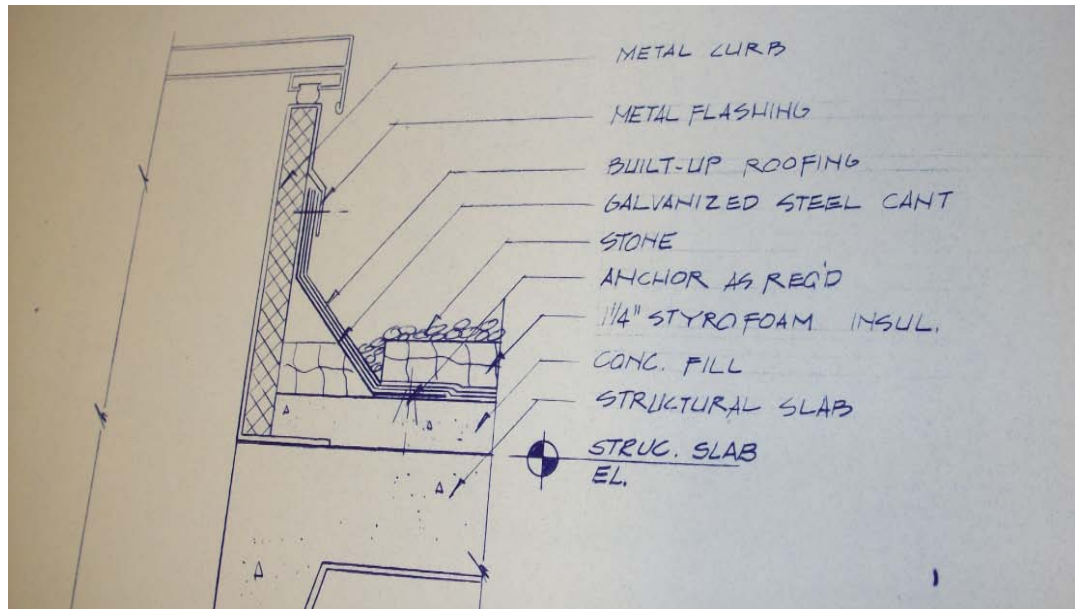 METAL CURB
METAL FLASHING
BUILT-UP ROOFING
GALVANIZED STEEL CANT
STONE
ANCHOR AS REQ'D
1 1/4" STYROFOAM INSUL.
CONC. FILL
STRUCTURAL SLAB
STRUC. SLAB
EL.
1